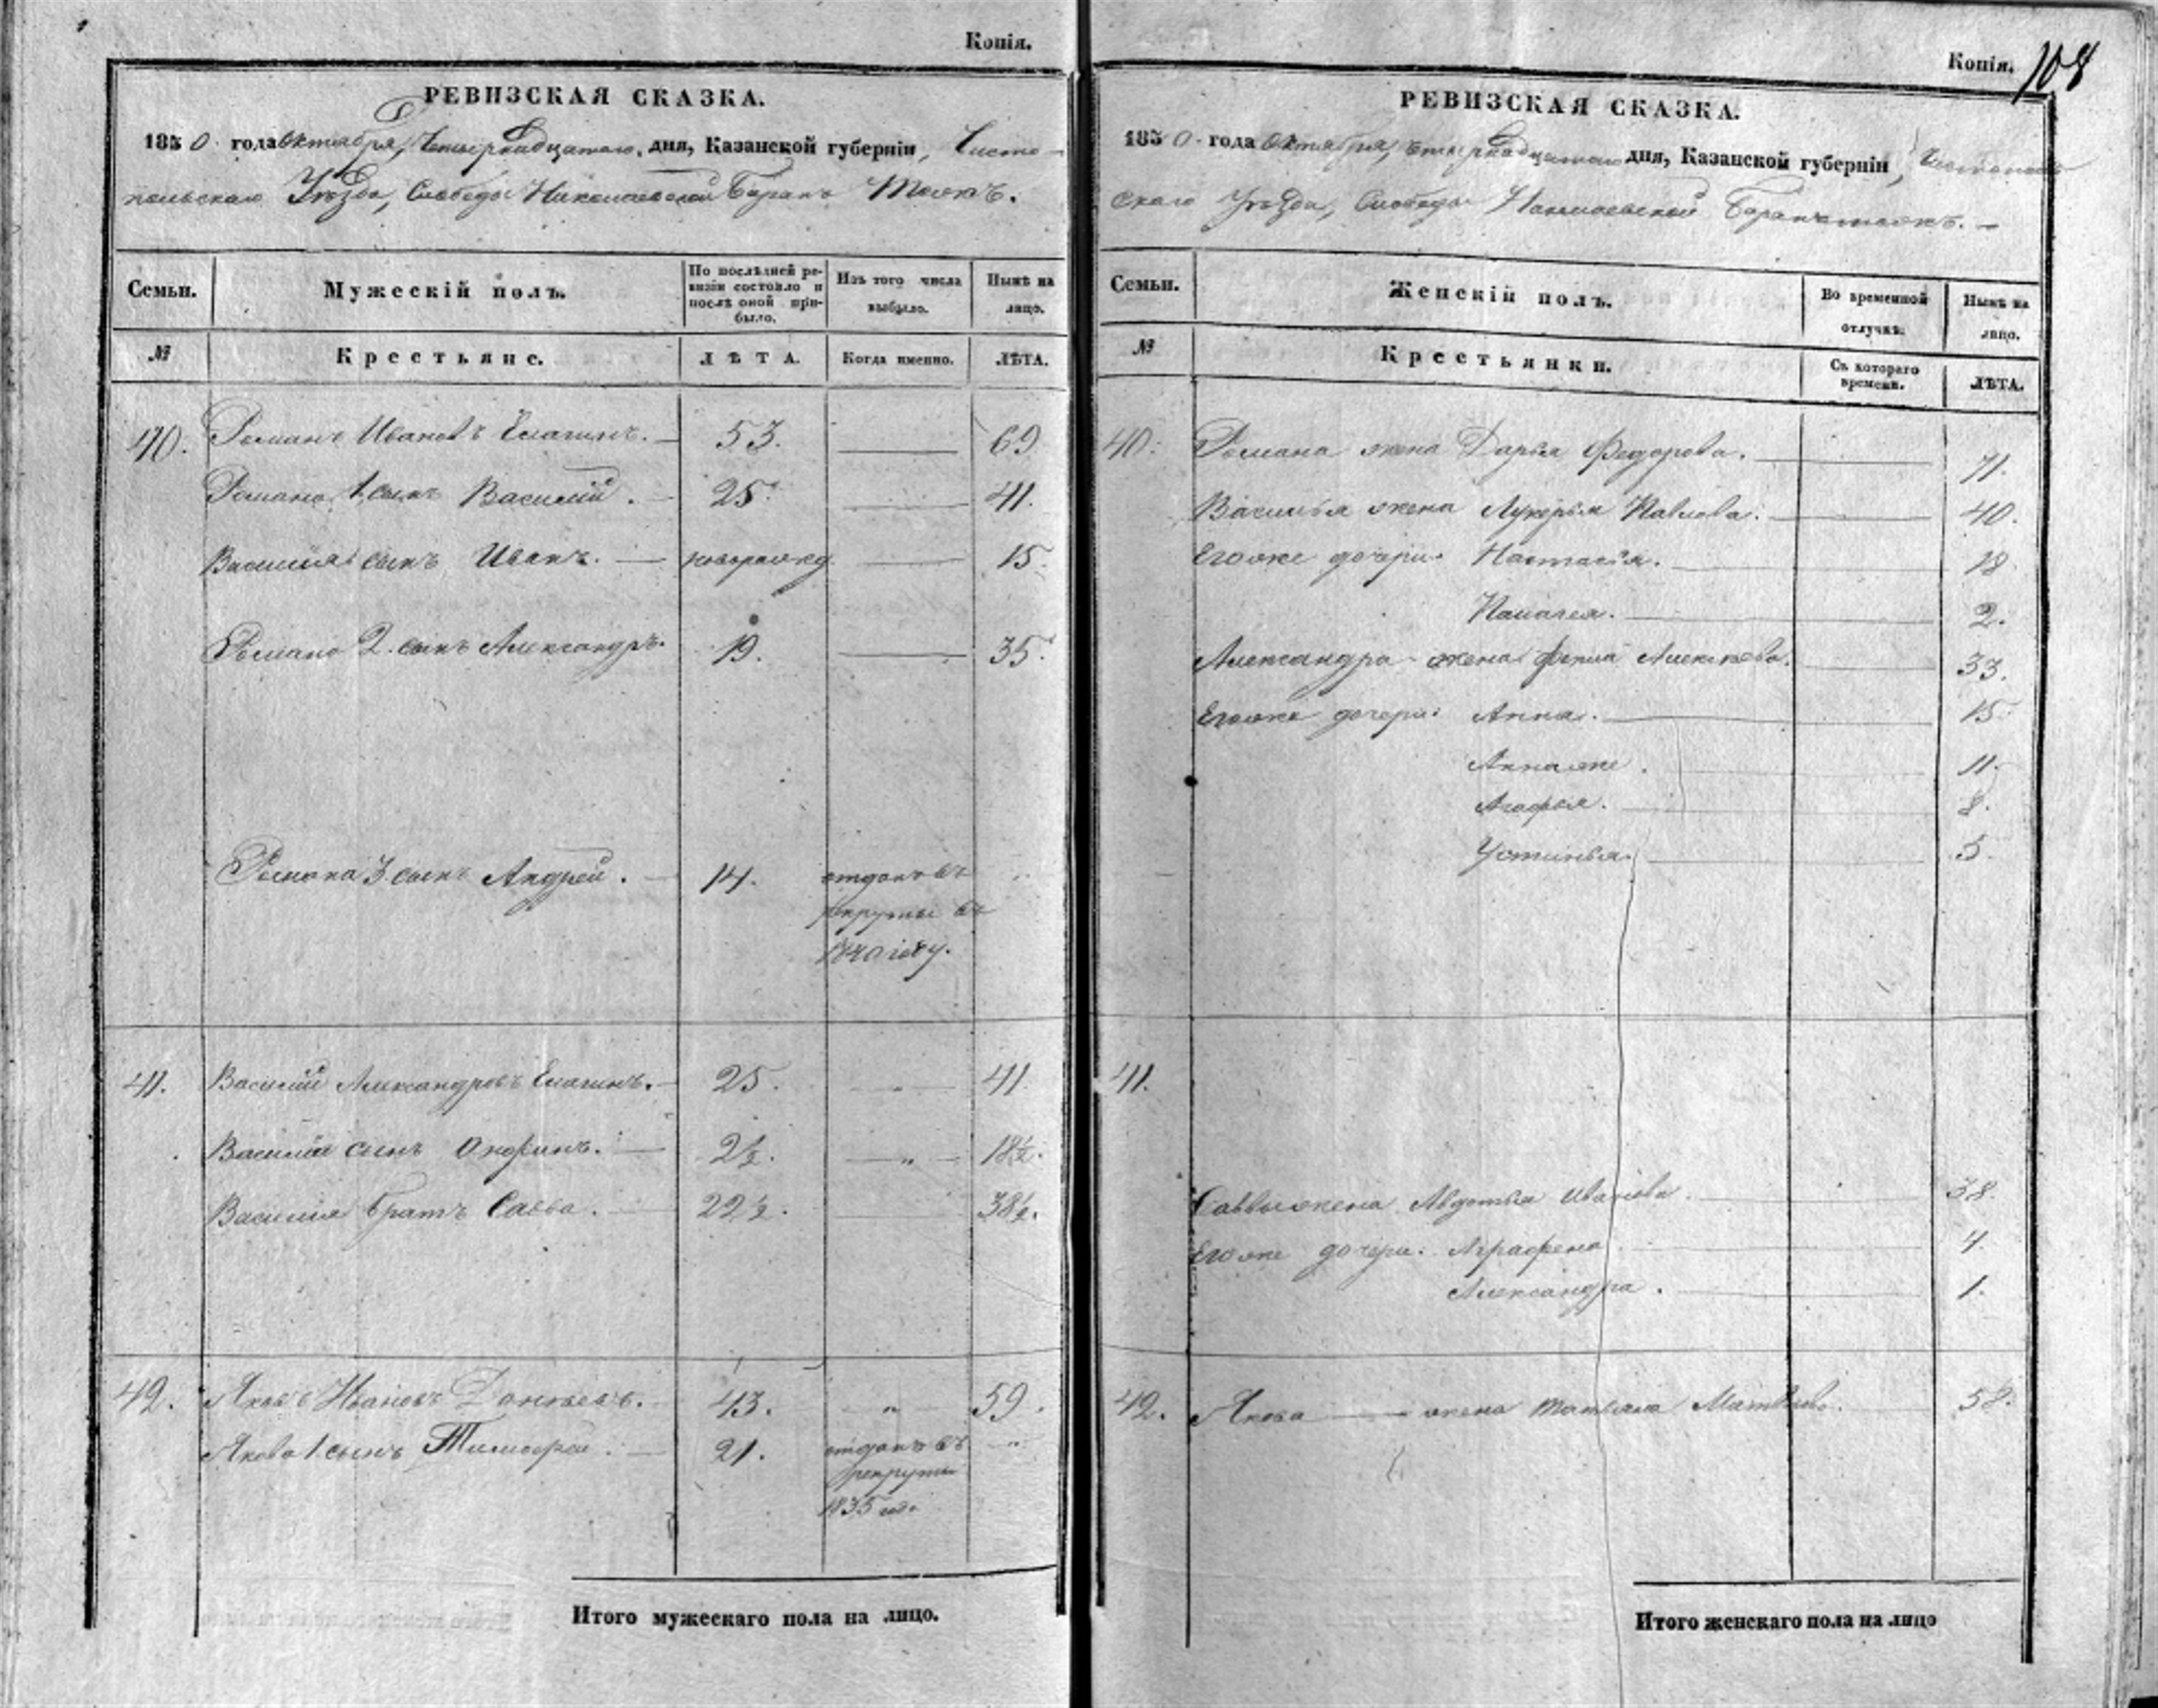 Копія.
РЕВИЗСКАЯ СКАЗКА.
1850 года Октября, Четырнадцатаго дня, Казанской губерніи, Чисто-
польскаго Уѣзда, Слободы Николаевской Баранъ тожъ.
Семьи. Мужескій полъ. По послѣдней ре-визіи состояло и послѣ оной при-было. Изъ того числа выбыло. Нынѣ на лицо.
№ Крестьяне. ЛѢТА. Когда именно. ЛѢТА.
40. Романъ Ивановъ Елагинъ. 53. 69
Романа 1 сынъ Василій. 25. 41.
Василья сынъ Иванъ. новорожд 15
Романа 2. сынъ Александръ. 19. 35.
Романа 3 сынъ Андрей. 14. отданъ въ
рекруты въ
1840 году.
41. Василій Александровъ Елагинъ. 25. 41
Василія сынъ 2½. „ 18½.
Василия братъ Савва. 22½. 38½.
42. Яковъ Ивановъ 43. „ 59.
Якова 1. сынъ Тимофей. 21. отданъ въ „
рекруты
1835 годѣ
Итого мужескаго пола на лицо.
Копія. 108
РЕВИЗСКАЯ СКАЗКА.
1850 года Октября, Четырнадцатаго дня, Казанской губерніи, Чистополь
скаго Уѣзда, Слободы Николаевской Баранъ тожъ.
Семьи. Женскій полъ. Во временной отлучкѣ. Нынѣ на лицо.
№ Крестьянки. Съ котораго времени. ЛѢТА.
40. Романа жена Дарья Федорова. 71.
Василья жена Лукерья Павлова. 40.
Егоже дочери: Настасья. 18
2.
Александра жена Алексѣева. 33.
Егоже дочери: Анна. 15.
Анна же. 11.
Агафья. 8.
Устинья. 5.
41.
Саввы жена Авдотья Иванова. 38.
Егоже дочери: Аграфена 4.
Александра. 1.
42. Якова жена Татьяна Матвѣева. 58.
Итого женскаго пола на лицо